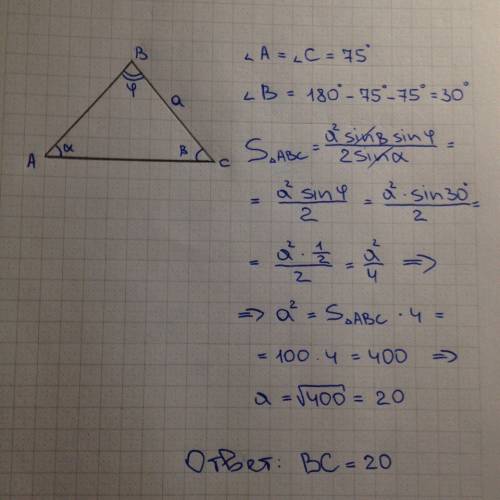 B
φ
a
A
α
β
C
∠A = ∠C = 75°
∠B = 180° - 75° - 75° = 30°
S△ABC = a² sinβ sinφ / 2sinα =
= a² sinφ / 2 = a² · sin30° / 2 =
= a² · 1/2 / 2 = a² / 4 ⇒
⇒ a² = S△ABC · 4 =
= 100 · 4 = 400 ⇒
a = √400 = 20
Ответ: BC = 20